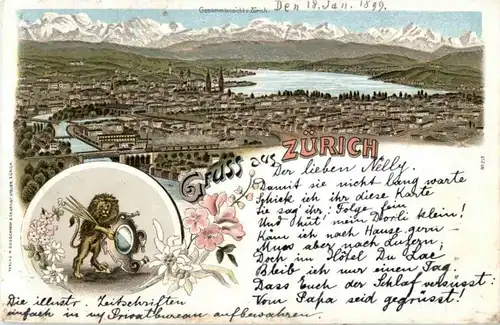 Gesammtansicht v. Zürich.
Den 18. Jan. 1899.
Gruss aus ZÜRICH
Der lieben Nelly.
Damit sie nicht lang warte
Schick ich ihr diese Karte
Sie sag ihr: Folge fein
Und hüt' mein Dorli klein!
Käm ich nach Hause gern –
Muss aber nach Luzern;
Doch im Hôtel Du Lac
Bleib ich nur einen Tag
Dass Euch der Schlaf versüsst:
Vom Papa seid gegrüsst!
Die illustr. Zeitschriften
einfach in m/ Privatbureau aufbewahren.